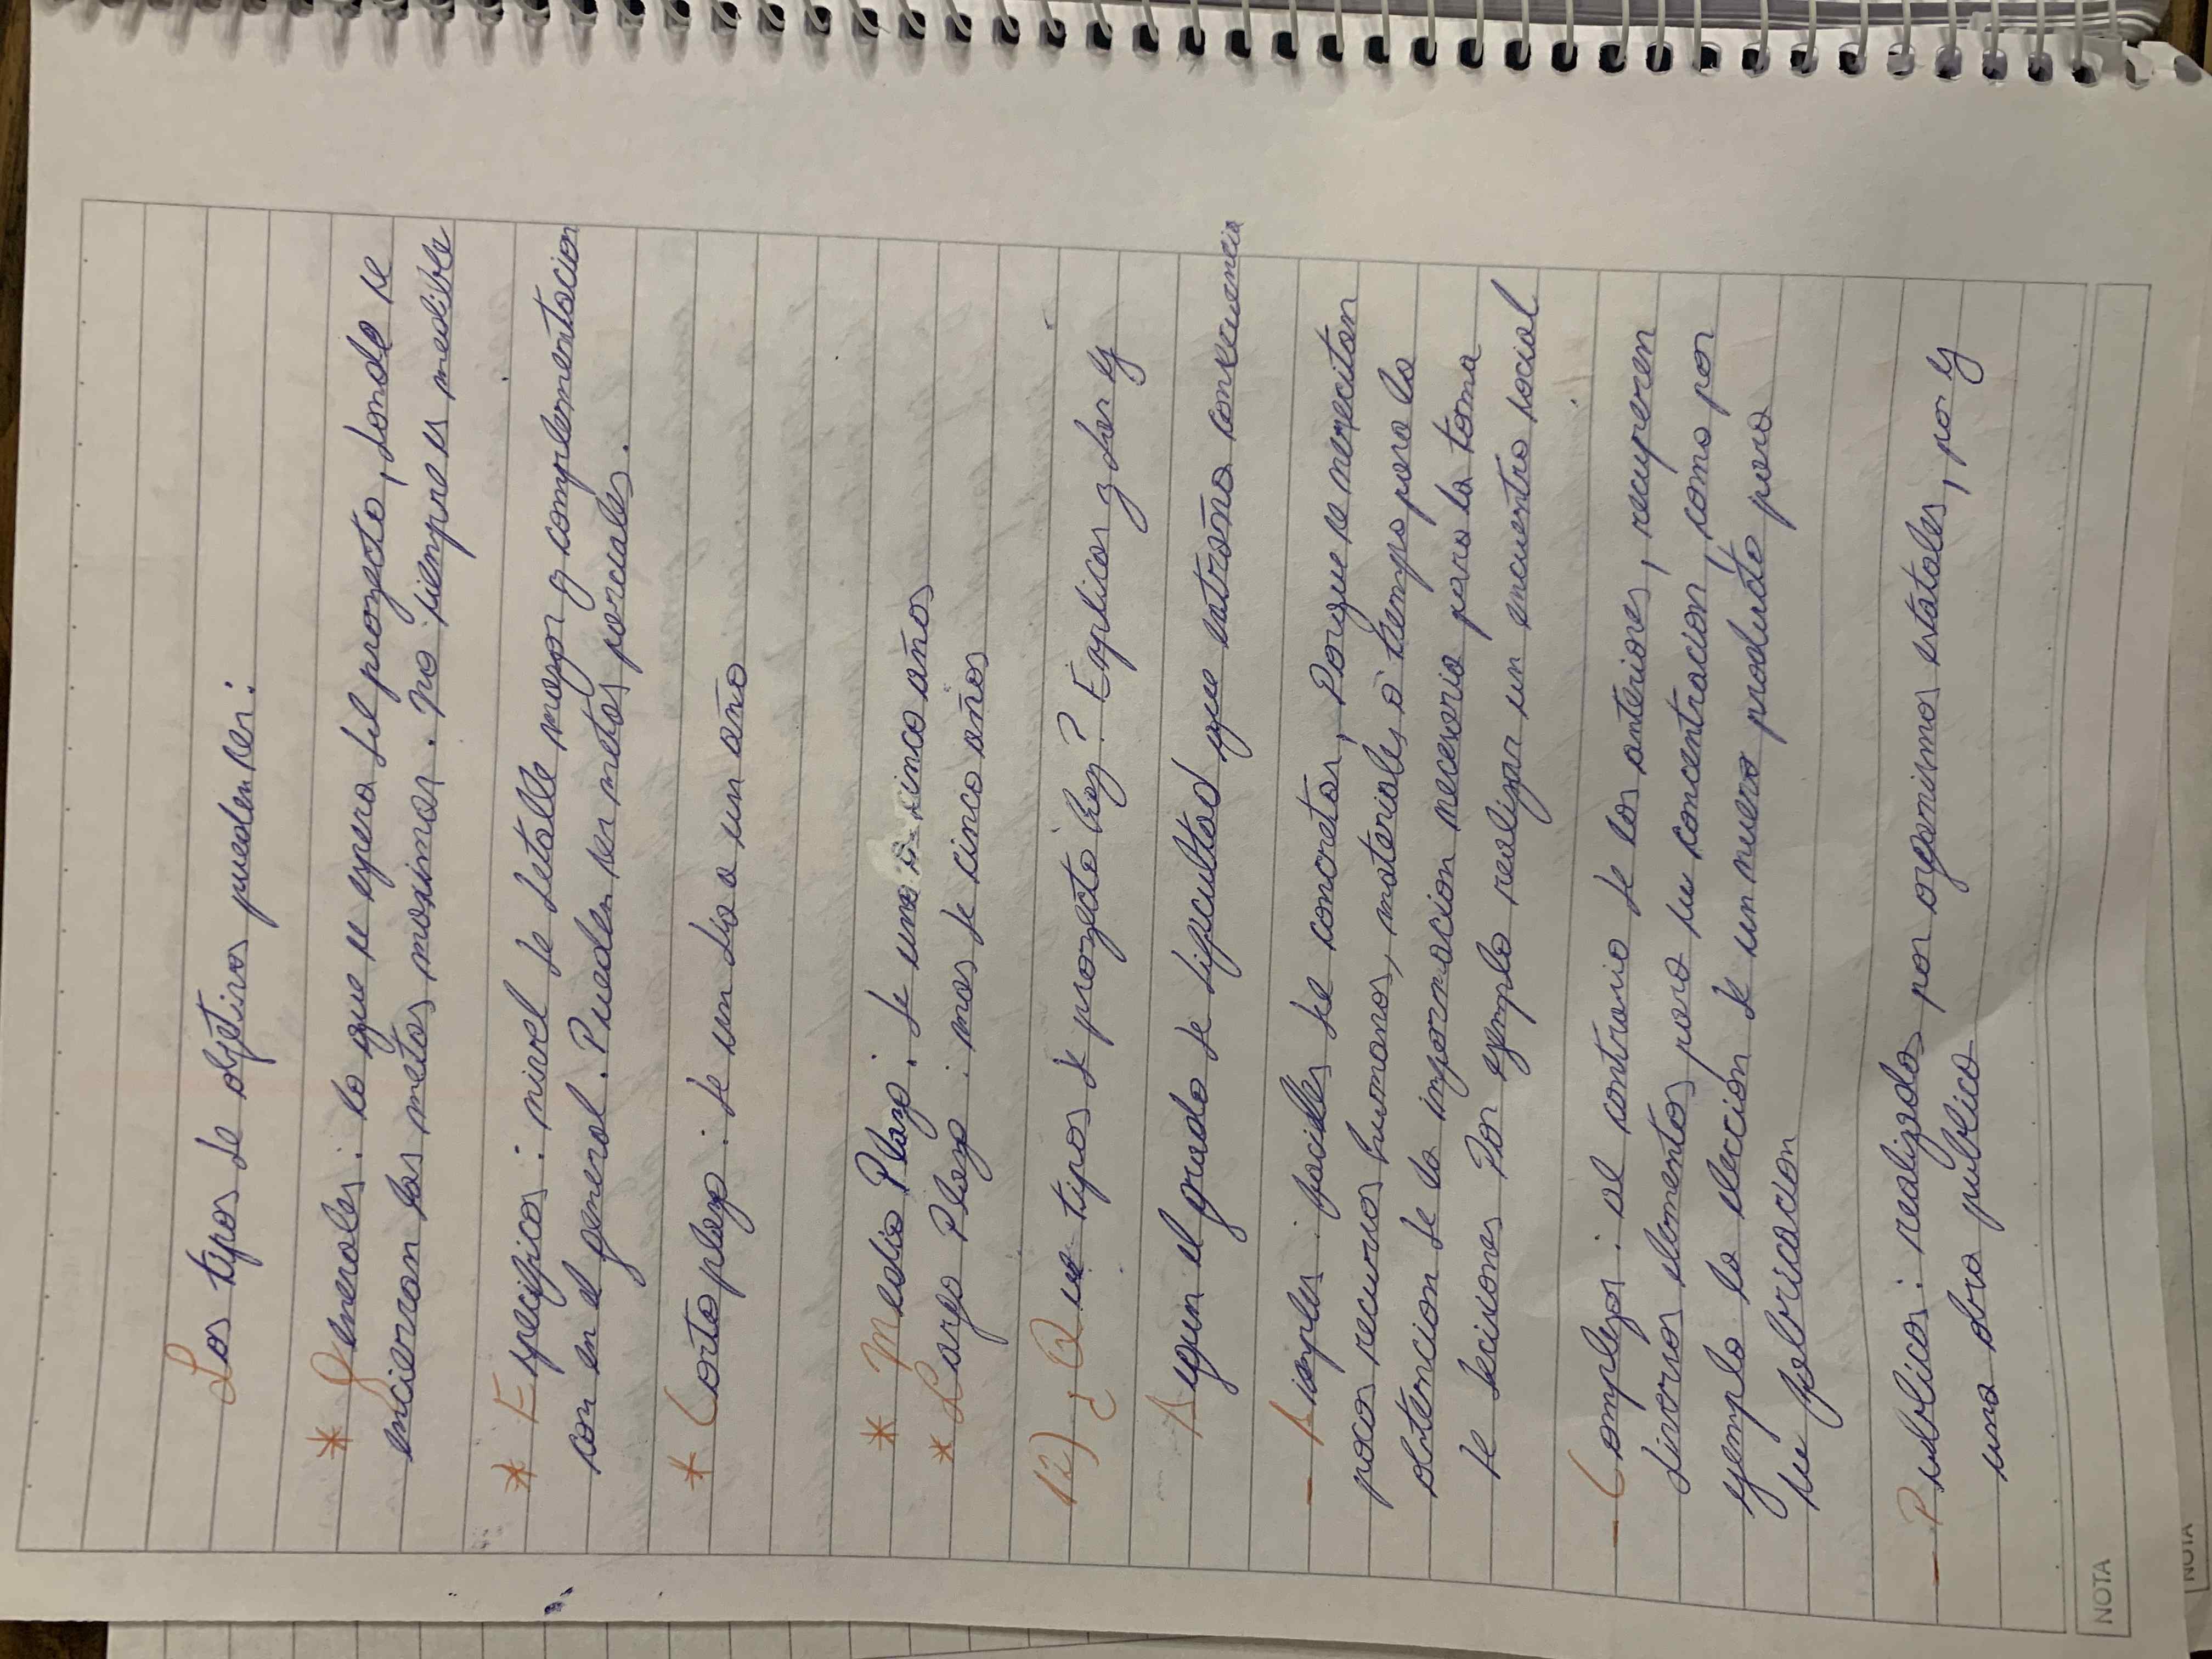 Los tipos de objetivos pueden ser:
* Generales: lo que se espera del proyecto, donde se
encierran las metas maximas. No siempre es medible
* Especificos: nivel de detalle mayor y complementacion
con en el general. Pueden ser metas parciales.
* Corto plazo: de un dia a un año
* Medio Plazo: de uno a cinco años
* Largo Plazo: mas de cinco años
12) ¿Que tipos de proyecto hay? Explicar y dar ej
Segun el grado de dificultad que entraña consecuencia
- Simples: faciles de concretar, Porque se nececitan
pocos recursos humanos, materiales o tiempo para la
obtencion de la informacion necesaria para la toma
de decisiones Por ejemplo realizar un encuentro social
- Complejos: al contrario de los anteriores, recuperen
diversos elementos para su concentracion, como por
ejemplo la eleccion de un nuevo producto para
su fabricacion
- Publicos: realizados por organismos estatales, por ej
una obra publica
NOTA
NOTA